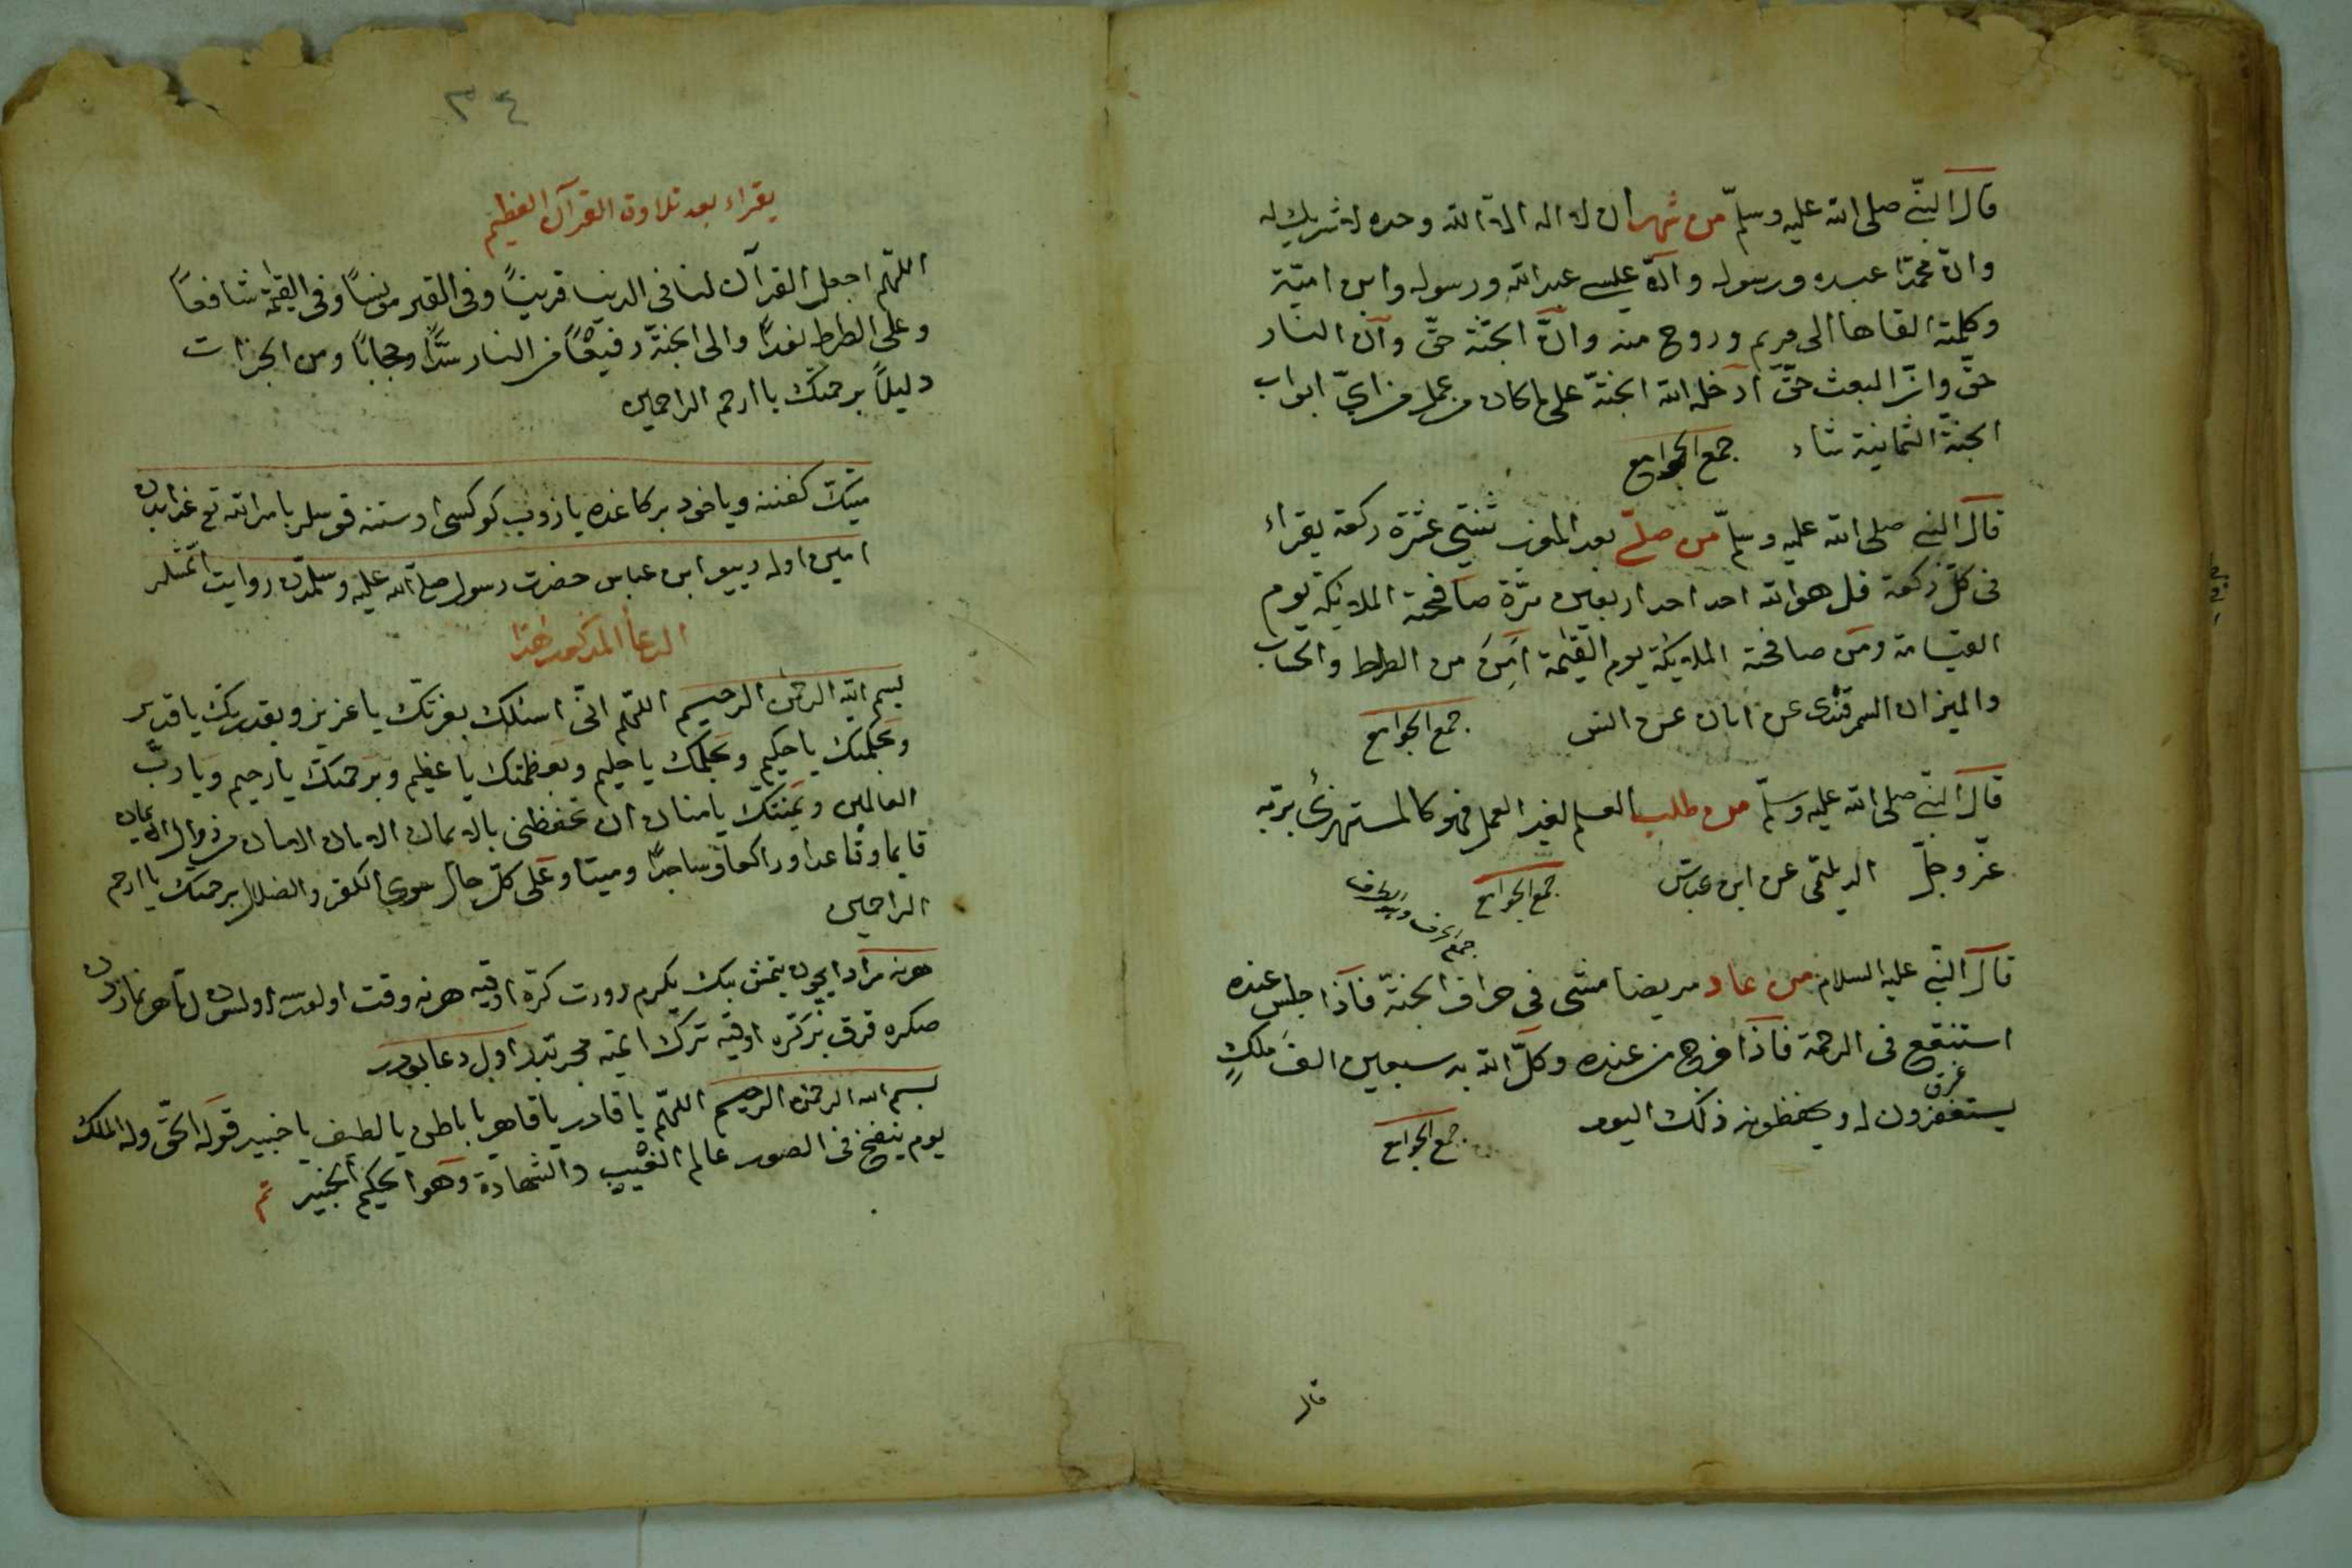 قال النبي صلى الله عليه وسلم من شهد ان لا اله الا الله وحده لا شريك له
وان محمدا عبده ورسوله وان عيسى عبد الله ورسوله وابن امته
وكلمته القاها الى مريم وروح منه وان الجنة حق وان النار
حق وان البعث حق ادخله الله الجنة على ما كان من عمل من اى ابواب
الجنة الثمانية شاء جمع الجوامع
قال النبى صلى الله عليه وسلم من صلى بعد المغرب ثنتى عشرة ركعة يقراء
فى كل ركعة قل هو الله احد احد اربعين مرة صافحته الملائكة يوم
القيامة ومن صافحته الملائكة يوم القيمة امن من الصراط والحساب
والميزان السمرقندى عن ابان عن انس جمع الجوامع
قال النبى صلى الله عليه وسلم من طلب العلم لغير العمل فهو كالمستهزئ بربه
عز وجل الديلمى عن ابن عباس جمع الجوامع
قال النبى عليه السلام من عاد مريضا مشى فى خراف الجنة فاذا جلس عنده
استنقع فى الرحمة فاذا خرج من عنده وكل الله به سبعين الف ملك
يستغفرون له ويحفظونه ذلك اليوم جمع الجوامع
قال
٣٤
يقراء بعد تلاوة القرآن العظيم
اللهم اجعل القرآن لنا فى الدنيا قرينا وفى القبر مونسا وفى القيمة شافعا
وعلى الصراط نورا والى الجنة رفيقا من النار سترا وحجابا ومن الخيرات
دليلا برحمتك يا ارحم الراحمين
ميتك كفننه وياخود بر كاغده يازوب كوكسى اوستنه قوسلر بامر الله تع عذابدن
امين اوله ديو ابن عباس حضرت رسول صلى الله عليه وسلمدن روايت اتمشلر
الدعأ المذكور هذا
بسم الله الرحمن الرحيم اللهم انى اسئلك بعزتك يا عزيز وبقدرتك يا قدير
وبحكمتك يا حكيم وبحلمك يا حليم وبعظمتك يا عظيم وبرحمتك يا رحيم ويا رب
العالمين وبمنتك يا منان ان تحفظنى بالايمان الامان الامان من زوال الايمان
قايما وقاعدا وراكعا وساجدا وميتا وعلى كل حال سوى الكفر والضلال برحمتك يا ارحم
الراحمين
هر نه مراد ايچون يتمش بيك يكرمى درت كره اوقيه هر نه وقت اولورسه اولسون اما هر نمازدن
صكره قرق بر كره اوقيه ترك ايتميه مجربتدر اول دعا بودر
بسم الله الرحمن الرحيم اللهم يا قادر يا قاهر يا باطن يا لطيف يا خبير قوله الحق وله الملك
يوم ينفخ فى الصور عالم الغيب والشهادة وهو الحكيم الخبير تم